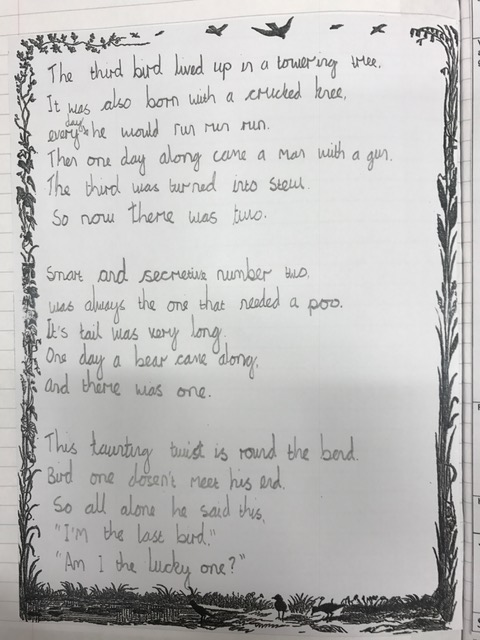 The third bird lived up in a towering tree.
It was also born with a crucked knee,
every day he would run run run.
Then one day along came a man with a gun.
The third was turned into stew.
So now there was two.
Smart and secretive number two,
was always the one that needed a poo.
It's tail was very long.
One day a bear came along,
and there was one.
This taunting twist is round the bend.
Bird one dosen't meet his end.
So all alone he said this,
"I'm the last bird."
"Am I the lucky one?"